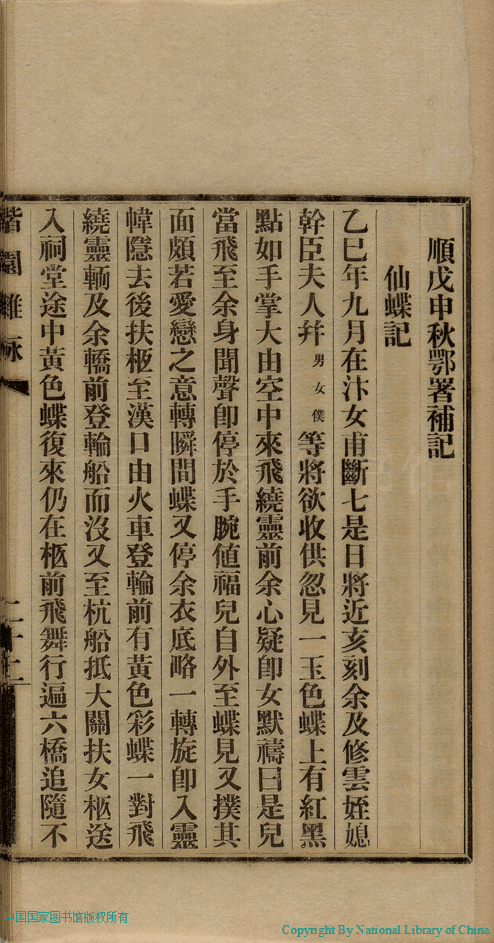 順戊申秋鄂署補記
仙蝶記
乙巳年九月在汴女甫斷七是日將近亥刻余及修雲姪媳
幹臣夫人幷男女僕等將欲收供忽見一玉色蝶上有紅黑
點如手掌大由空中來飛繞靈前余心疑卽女默禱曰是兒
當飛至余身聞聲卽停於手腕値福兒自外至蝶見又撲其
面頗若愛戀之意轉瞬間蝶又停余衣底略一轉旋卽入靈
幃隱去後扶柩至漢口由火車登輪前有黃色彩蝶一對飛
繞靈輀及余轎前登輪船而沒又至杭船抵大關扶女柩送
入祠堂途中黃色蝶復來仍在柩前飛舞行遍六橋追隨不
喈園雜詠
二十二
中国国家图书馆版权所有
Copyright By National Library of China